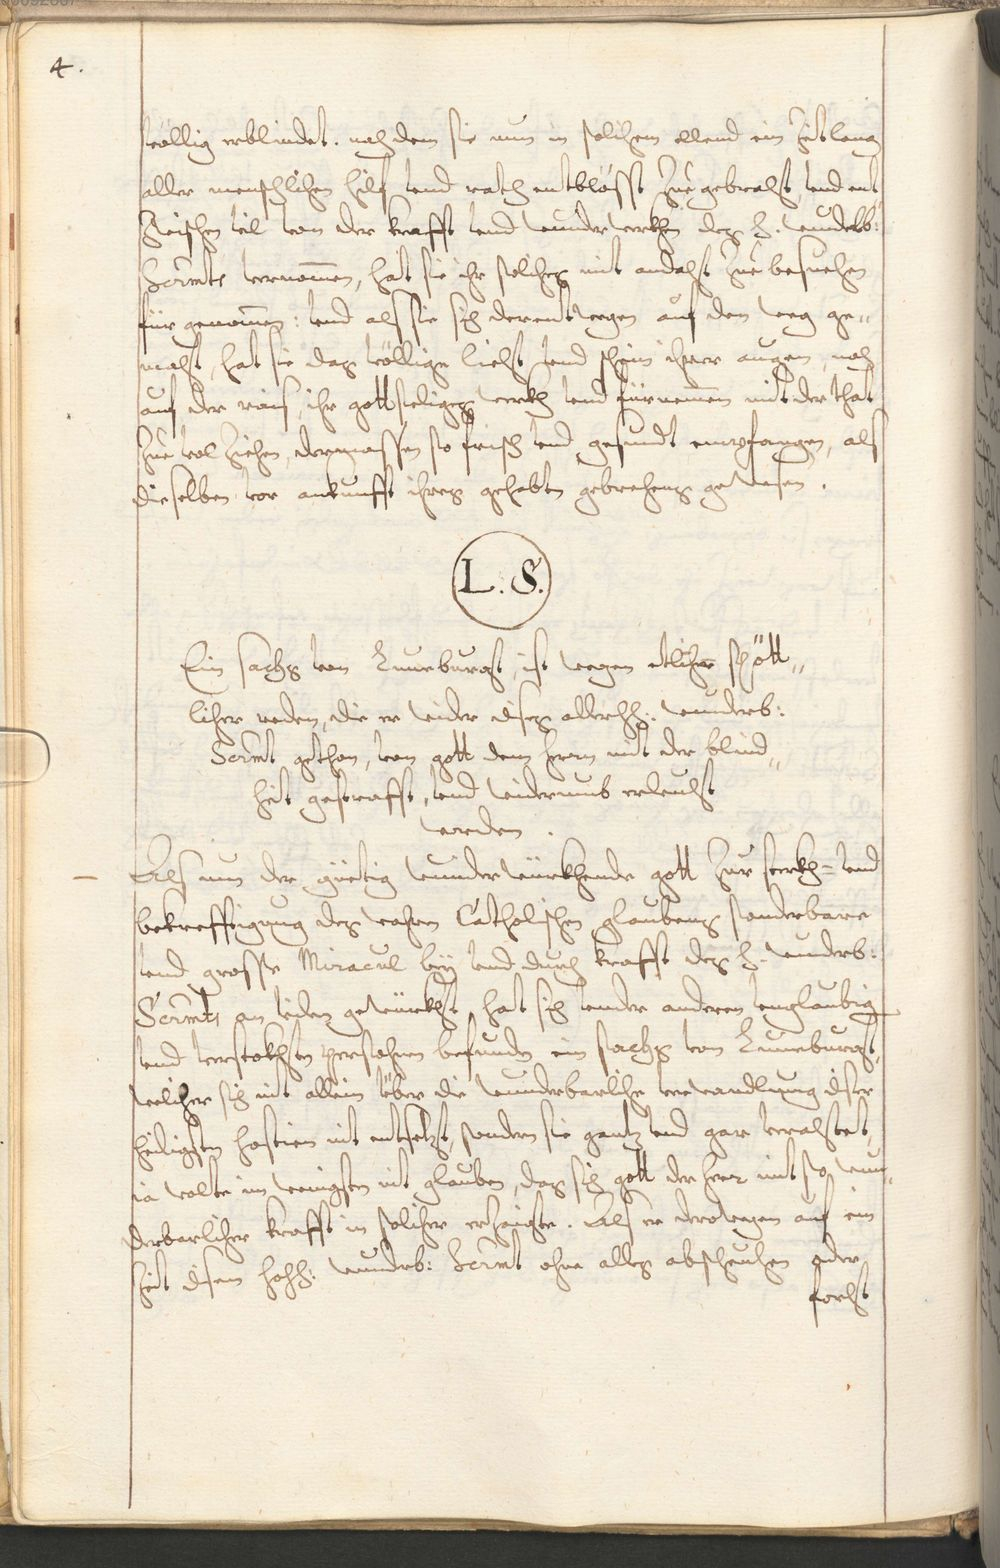 4.
völlig erblindet. nach dem sie nun in solichem ellend ein Zeit lang
aller menschlichen hilf vnd rath entblösst Zue gebracht, vnd ent
Zwischen vil von der krafft vnd wunder werkhen deß h. wunderb:
Sacrmts vernom̄en, hat sie ihr solches mit andacht Zue besuechen
für genom̄en: vnd alß sie sich derentwegen auf den weg ge„
macht, hat sie daß völlige liecht vnd schein ihrer augen, noch
auf der raiß, ihr gottseliges werkh vnd fürnem̄en mit der that
Zue vol Ziehen, dermassen so frisch vnd gesundt empfangen, alß
dieselben vor ankunfft ihres gehabten gebrechens gewesen.
L. S.
Ein Sachß von Lüneburg, ist wegen etlicher spött„
licher reden, die er wider dises allerhh. wunderb:
Sacrmt gethon, von gott dem herrn mit der blind„
heit gestrafft, vnd widerumb erleucht
worden.
Alß nun der güetig wunder würkhende gott Zur sterkh= vnd
bekrefftigung deß wahren Catholischen glaubens sonderbare
vnd grosse Miracul bey vnd durch krafft deß h. wunderb:
Sacrmts an vilen gewürkht, hat sich vnder anderen vnglaubig
vnd verstokhten persohnen befunden ein Sachß von Lüneburg,
welicher sich nit allein über die wunderbarliche verwandlung diser
heiligsten hostien nit entsetzt, sondern sie gantz vnd gar verachtet,
ia wolte im wenigsten nit glauben, daß sich gott der herr mit so wun„
derbarlicher krafft in solicher erzeigte. Alß er derowegen auf ein
Zeit disem hochh. wunderb: Sacrmt ohne alles abscheuchen oder
forcht